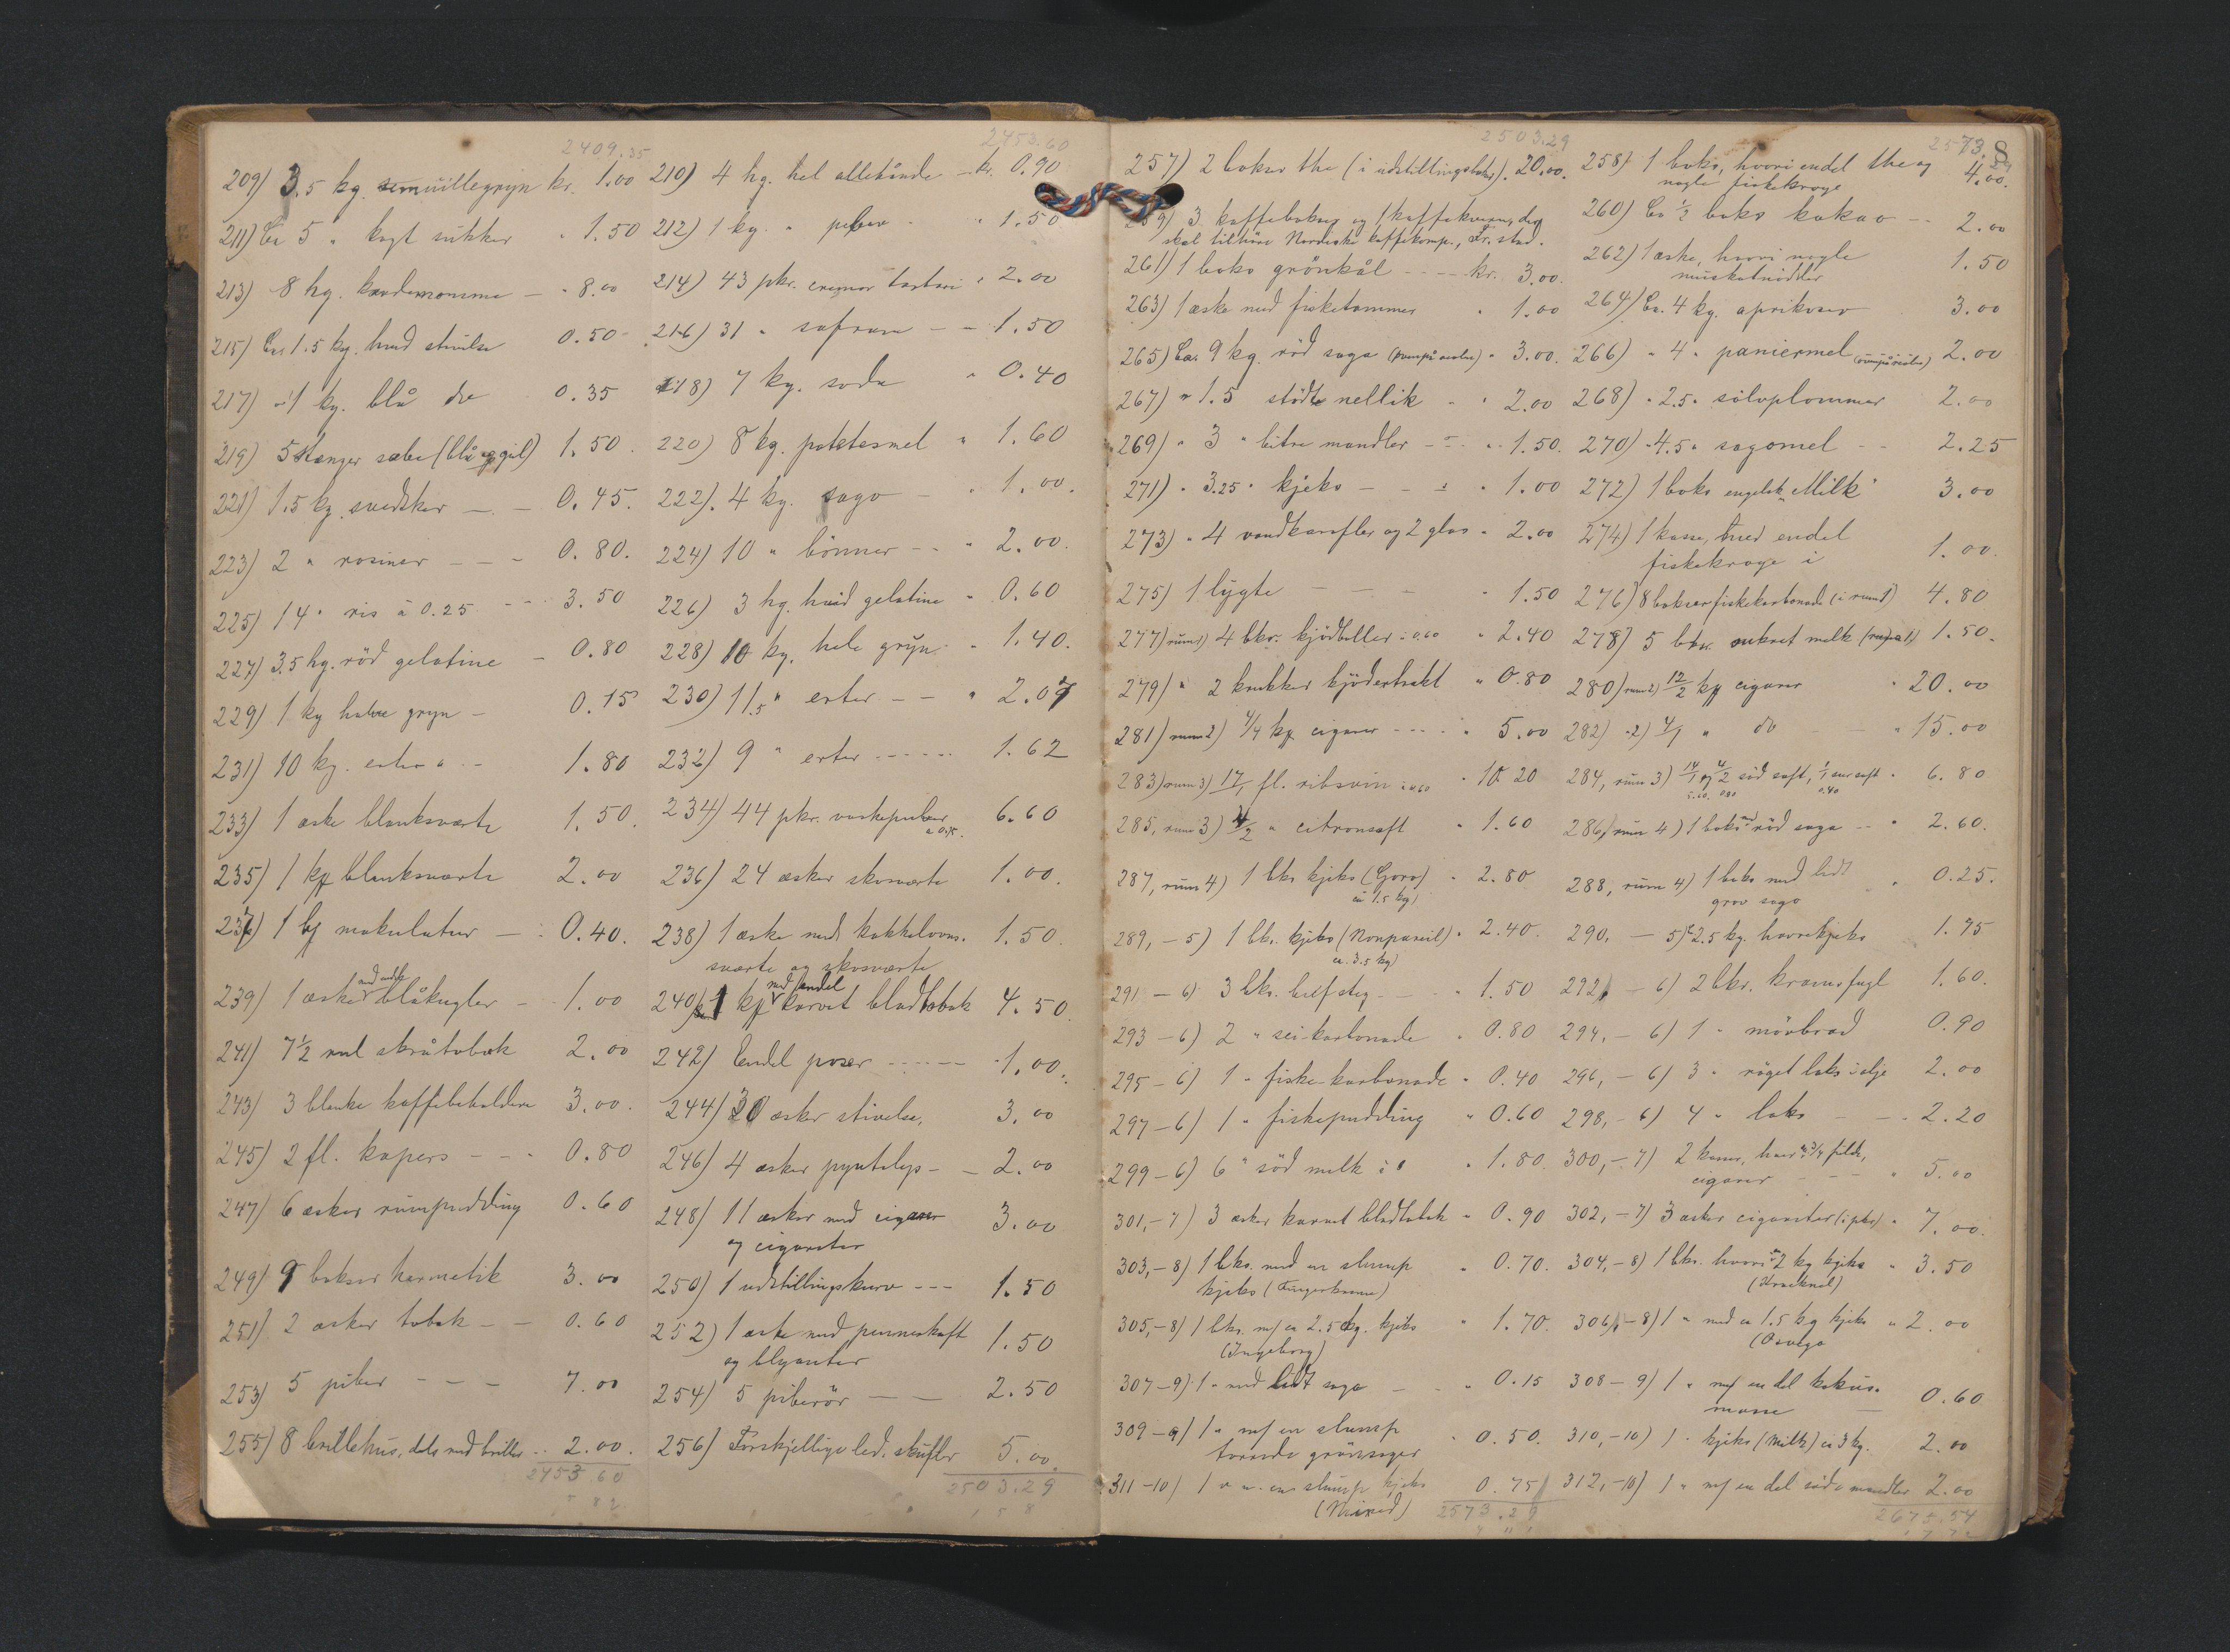 2409.35
2453.60
209) 3.5 kg. semuillegryn kr. 1.00
210) 4 hg. hel allehånde - kr. 0.90
211) Ca 5 " kogt sukker " 1.50
212) 1 kg. " peber " 1.50
213) 8 hg. kardemomme - " 8.00
214) 43 pkr. cremor tartari " 2.00
215) Ca 1.5 kg. hvid stivelse 0.50
216) 31 " safran - - 1.50
217) " 1 kg. blå do 0.35
218) 7 kg. soda " 0.40
219) 5 Stænger sæbe (blå og gul) 1.50.
220) 8 kg. potetesmel " 1.60
221) 1.5 kg. svedsker - - 0.45.
222) 4 kg. sago - " 1.00.
223) 2 " rosiner - - - 0.80.
224) 10 " bönner - - " 2.00.
225) 14 " ris à 0.25 - - 3.50
226) 3 hg. hvid gelatine " 0.60
227) 3.5 hg. röd gelatine - 0.80
228) 10 kg. hele gryn - " 1.40.
229) 1 kg halve gryn - 0.15
230) 11.5 " erter - " 2.07
231) 10 kg. erter " - 1.80
232) 9 " erter ----- 1.62
233) 1 æske blanksværte 1.50.
234) 44 pkr. vaskepulver à 0.15. 6.60
235) 1 kg blanksværte 2.00
236) 24 æsker skosværte 1.00.
237) 1 bg makulatur - : 0.40.
238) 1 æske med kakkelovns- 1.50.
sværte og skosværte
239) 1 æske med endel blåkugler - 1.00
240) 1 kg med endel karvet bladtobak 4.50.
241) 7 ½ rul skråtobak 2.00
242) Endel poser ----- 1.00.
243) 3 blanke kaffebeholdere 3.00.
244) 30 æsker stivelse, 3.00
245) 2 fl. kapers - - - 0.80
246) 4 æsker pyntelys - - 2.00
247) 6 æsker rumpudding 0.60
248) 11 æsker med cigarer 3.00
og cigaretter
249) 9 bokser hermetik 3.00
250) 1 udstillingskurv --- 1.50
251) 2 æsker tobak - - 0.60
252) 1 æske med penneskaft 1.50
og blyanter
253) 5 piber - - - 7.00
254) 5 piberör - - 2.50
255) 8 brillehus, dels med briller - 2.00.
256) Forskjellige led. skuffer 5.00.
2453.60
2503.29
2503.29
2573.29
8
257) 2 bokser the (i udstillingsbokse). 20.00.
258) 1 boks, hvori endel the og 4.00.
nogle fiskekroge
259) 3 kaffebokser og 1 kaffekværn, der
skal tilhöre Nordiske kaffekomp., Fr.stad.
260) Ca ½ boks kakao - - 2.00
261) 1 boks grönkål ---- kr. 3.00.
262) 1 æske, hvori nogle 1.50
muskatnödder
263) 1 æske med fisketommer " 1.00
264) Ca. 4 kg. aprikoser 3.00
265) Ca. 9 kg. röd sago " 3.00.
266) " 4 " paniermel 2.00
267) " 1.5 stödt nellik " " 2.00
268) " 2.5 " sölvplommer 2.00
269) " 3 " bitre mandler - - " 1.50.
270) " 4.5 " sagomel - - 2.25
271) " 3.25 " kjeks - - - " 1.00
272) 1 boks engelsk „Milk" 3.00
273) " 4 vandkarafler og 2 glas " 2.00
274) 1 kasse, med endel 1.00.
fiskekroge i
275) 1 lygte - - - " 1.50
276) 8 bokser fiskekarbonade (i rum 1) 4.80
277) rum 1) 4 bkr. kjödboller à 0.60 " 2.40
278) 5 bkr. sukret melk (rum 1) 1.50.
279) " 2 krukker kjödextrakt " 0.80
280) rum 2) 12/2 kg cigarer " 20.00
281) rum 2) 4/4 kg. cigarer ---- " 5.00
282) " 2) 4/1 " do - - " 15.00
283) rum 3) 17/1 fl. ribsvin à 0.60 " 10.20
284, rum 3) 14/1 og 4/2 söd saft, 1/1 sur saft " 6.80
285, rum 3) 4/2 " citronsaft " 1.60
286, rum 4) 1 boks röd sago - - " 2.60.
287, rum 4) 1 bks kjeks (Goro) " 2.80
ca 1.5 kg)
288, rum 4) 1 boks med lidt " 0.25.
grov sago
289, - 5) 1 bks. kjeks (Nonpareil) " 2.40.
ca. 3.5 kg)
290, - 5) 2.5 kg. havrekjeks 1.75
291 - 6) 3 bks. bifsteg - - " 1.50
292, - 6) 2 bkr. kramsfugl 1.60.
293 - 6) 2 " sei-karbonade " 0.80
294, - 6) 1 " mörbrad 0.90
295 - 6) 1 " fiske-karbonade " 0.40
296, - 6) 3 " röget laks i olje 2.00
297 - 6) 1 " fiskepudding " 0.60
298, - 6) 4 " laks - - . 2.20
299 - 6) 6 " söd melk " 1.80.
300, - 7) 2 kasser, hver 3/4 fuld, " 5.00
cigarer
301, - 7) 3 æsker karvet bladtobak " 0.90
302, - 7) 3 æsker cigaretter (i pkr) " 7.00.
303, - 8) 1 bks. med en slump " 0.70.
kjeks (Fingerkranse)
304, - 8) 1 bks. hvori 2 kg kjeks " 3.50
(Kracknel)
305, - 8) 1 bks. m/ ca 2.5 kg. kjeks " 1.70.
(Ingeborg)
306, - 8) 1 " med ca 1.5 kg kjeks " 2.00
(Osvego
307 - 9) 1 " med lidt sago - " 0.15
308 - 9) 1 " m/ en del kokus- 0.60
masse
309 - 9) 1 " m/ en slump " 0.50.
torrede grönsager
310, - 10) 1 " kjeks (Milk) ca 3 kg. 2.00
311 - 10) 1 " m. en slump kjeks 0.75
(Mixed)
312, - 10) 1 " m/ en del söde mandler 2.00
2573.29
2675.54